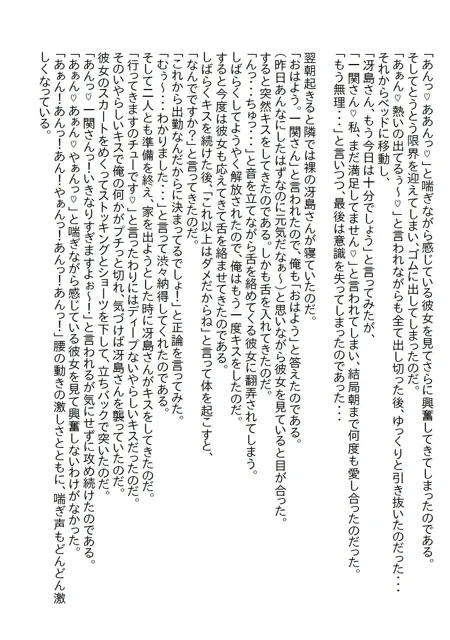 「あんっ♡ああんっ♡」と喘ぎながら感じている彼女を見てさらに興奮してきてしまったのだ。
そしてとうとう限界を迎えてしまい、ゴムに出してしまったのだ。
「あぁん♡熱いの出てるぅ～♡」と言われながらも全て出し切った後、ゆっくりと引き抜いたのだった・・・
それからベッドに移動し、
「冴島さん、もう今日は十分でしょう」と言ってみたが、
「一関さん♡私、まだ満足してません♡」と言われてしまい、結局朝まで何度も愛し合ったのだった。
「もう無理・・・」と言いつつ、最後は意識を失ってしまったのであった・・・

翌朝起きると隣では裸の冴島さんが寝ていたのだ。
「おはよう。一関さん」と言われたので、俺も「おはよう」と答えたのである。
(昨日あんなにしたはずなのに元気だなぁ～)と思いながら彼女を見ていると目が合った。
すると突然キスをしてきたのである。しかも舌を入れてきたのだ。
「んっ・・ちゅっ・・」と音を立てながら舌を絡めてくる彼女に翻弄されてしまう。
しばらくしてようやく解放されたので、俺はもう一度キスをしたのだ。
すると今度は彼女も応えてきて舌を絡ませてきたのである。
しばらくキスを続けた後、「これ以上はダメだからね」と言って体を起こすと、
「なんでですか？」と言ってきたのだ。
「これから出勤なんだからに決まってるでしょ！」と正論を言ってみた。
「むぅ～・・・わかりました・・・」と言って渋々納得してくれたのである。
そして二人とも準備を終え、家を出ようとした時に冴島さんがキスをしてきたのだ。
「行ってきますのチューです♡」と言ったわりにはディープないやらしいキスだったのだ。
そのいやらしいキスで俺の何かがプチっと切れ、気づけば冴島さんを襲っていたのだ。
彼女のスカートをめくってストッキングとショーツを下して、立ちバックで突いたのだ。
「あんっ♡一関さんっ！いきなりすぎますよぉ～！」と言われるが気にせずに攻め続けたのである。
「ああん♡あぁん♡やぁんっ♡」と喘ぎながら感じている彼女を見て興奮しないわけがなかった。
「あぁん！あんっ！あん！やぁんっ！あんっ！あんっ！」腰の動きの激しさとともに、喘ぎ声もどんどん激
しくなっている。